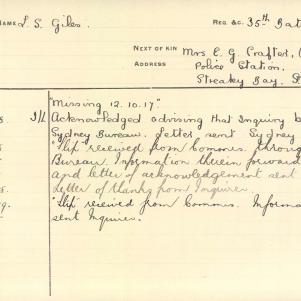 NAME L. S. Giles. REG. &C. 35th Bat
NEXT OF KIN Mrs E. G. Crafter,
ADDRESS Police Station.
Streaky Bay.
"Missing 12.10.17"
Acknowledged advising that Inquiry b
Sydney Bureau. Letter sent Sydney
"Slip" received from Commrs. through
Bureau. Information therein forward
and letter of acknowledgement sent
Letter of thanks from Inquirer.
"Slip" received from Commrs. Informa
sent Inquirer.